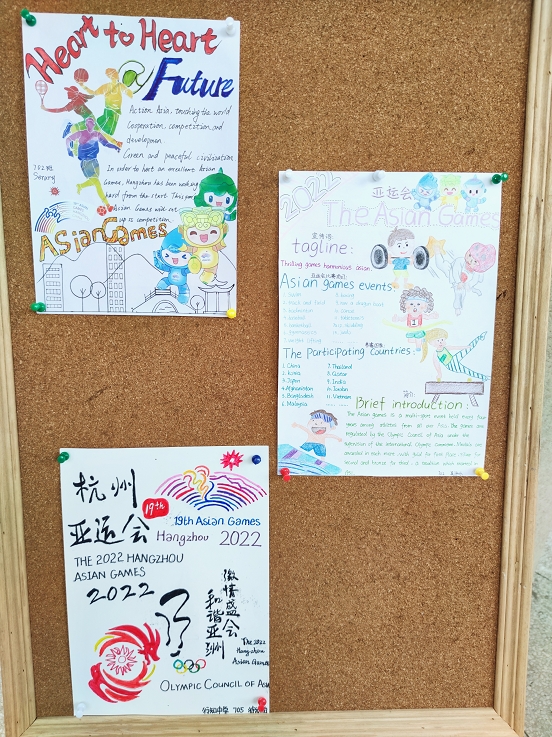 Heart to Heart
Future
Action Asia, touching the world
Cooperation, competition and
development
Green and peaceful civilization
In order to host an excellent Asian
Games, Hangzhou has been working
hard from the start. This
Asian Games will set
up 12 competition
702班
Asian Games
2022
亚运会
The Asian Games
宣传语
tagline:
Thrilling games harmonious asian.
Asian games events:
The Participating Countries:
1. China 7. Thailand
2. Korea 8. Qatar
3. Japan 9. India
4. Afghanistan 10. Jordan
5. Bangladesh 11. Vietnam
6. Malaysia
简介
Brief introduction:
The Asian games is a multi-sport event held every four
years among athletes from all over Asia. The games are
regulated by the Olympic Council of Asia under the
supervision of the International Olympic Committee. Medals are
awarded in each event, with gold for first place, silver for
second and bronze for third, a tradition which started in
杭州
亚运会
19th
19th Asian Games
Hangzhou 2022
THE 2022 HANGZHOU
ASIAN GAMES
2022
激情盛会
和谐亚洲
The 2022
Hangzhou
Asian Games
OLYMPIC COUNCIL OF
行知中学 705